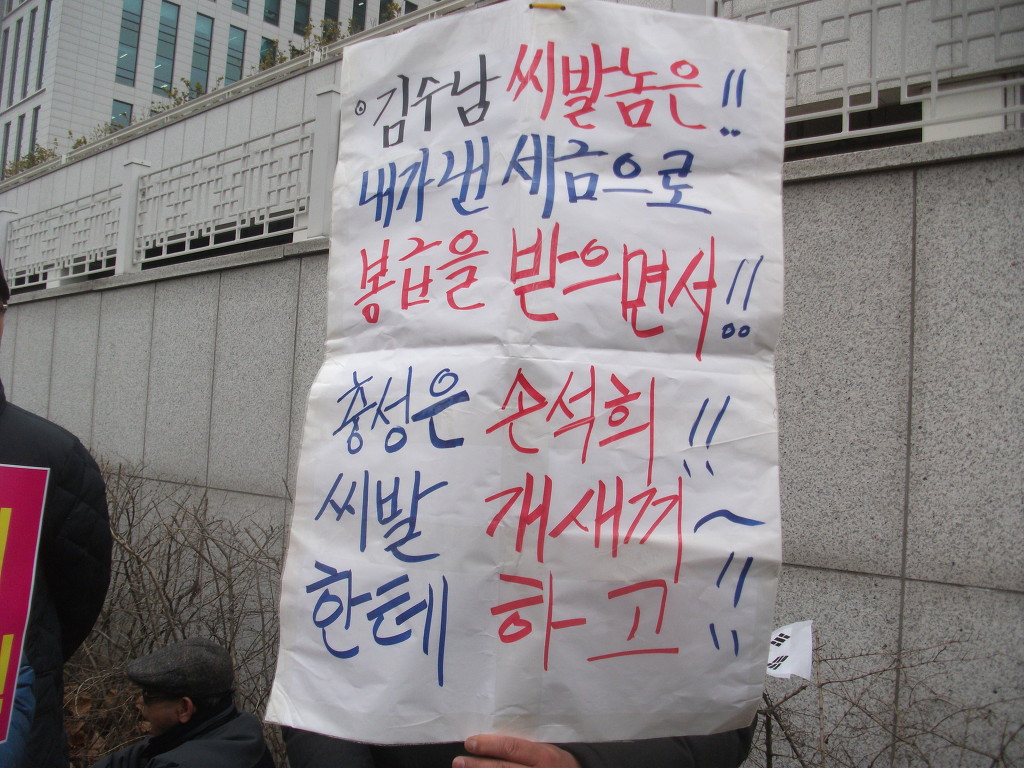 ◦김수남 씨발놈은!!
내가 낸 세금으로
봉급을 받으면서!!
충성은 손석희!!
씨발 개새끼~
한테 하고!!